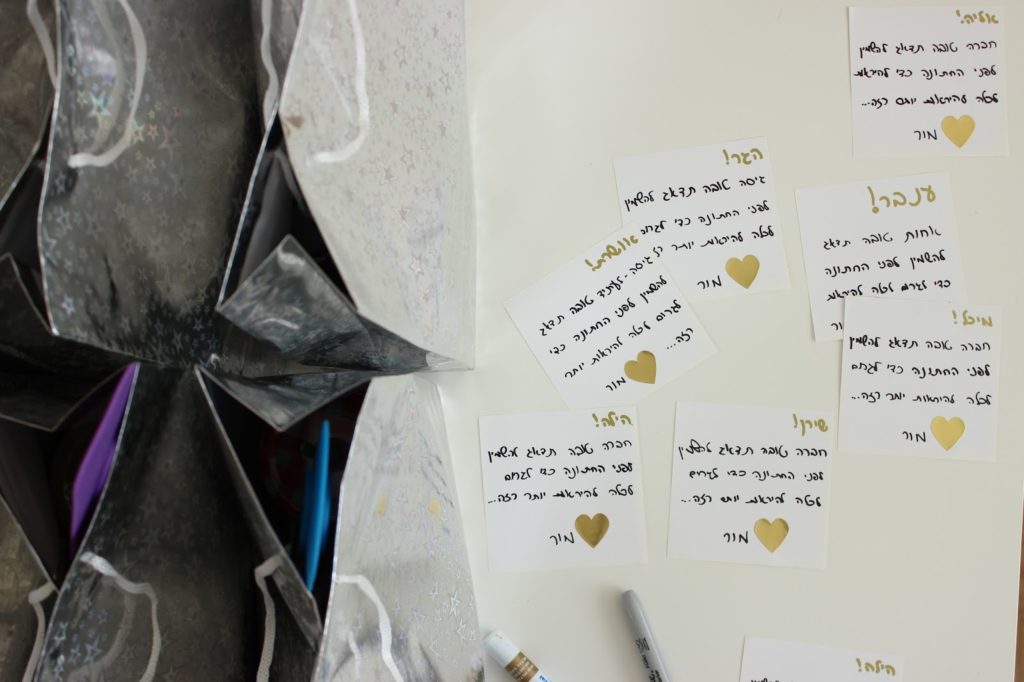 אליה!
חברה טובה תדאג להשמין
לפני החתונה כדי להיראות
לכלה להיראות יותר רזה...
מור
הגר!
גיסה טובה תדאג להשמין
לפני החתונה כדי לגרום
לכלה להיראות יותר
מור
ענבר!
אחות טובה תדאג
להשמין לפני החתונה
כדי לגרום לכלה להיראות
אושרת!
גיסה-לעתיד טובה תדאג
להשמין לפני החתונה כדי
לגרום לכלה להיראות יותר
רזה...
מור
מיכל!
חברה טובה תדאג להשמין
לפני החתונה כדי לגרום
לכלה להיראות יותר רזה...
מור
הילה!
חברה טובה תדאג להשמין
לפני החתונה כדי לגרום
לכלה להיראות יותר רזה...
מור
שירן!
חברה טובה תדאג להשמין
לפני החתונה כדי לגרום
לכלה להיראות יותר רזה...
מור
הילה!